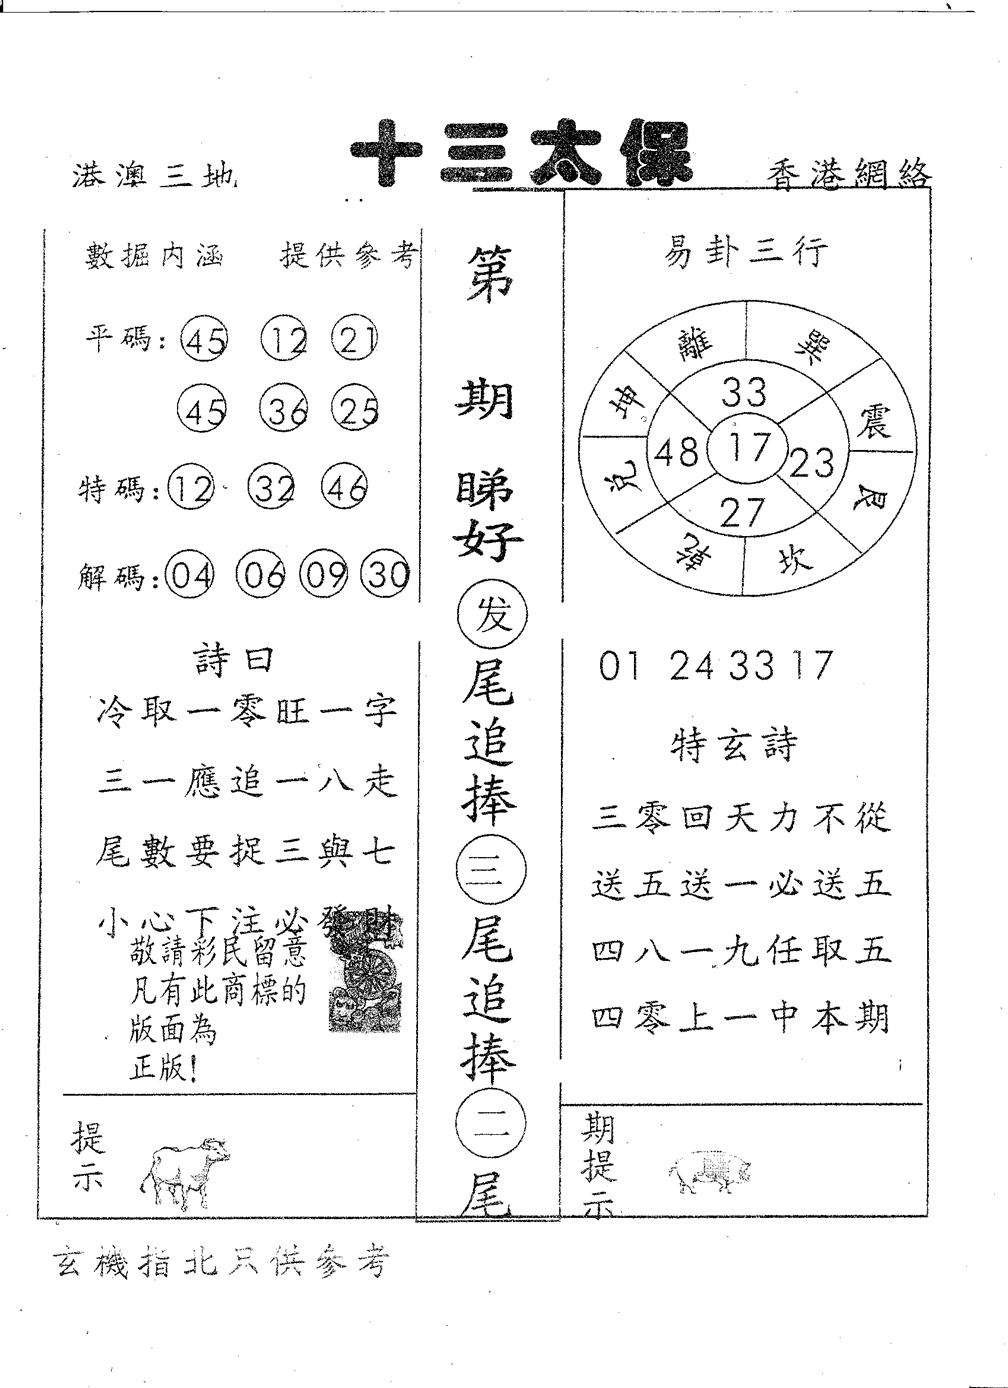 十三太保
港澳三地
香港網絡
數掘内涵 提供參考
平碼: 45 12 21
45 36 25
特碼: 12 32 46
解碼: 04 06 09 30
詩曰
冷取一零旺一字
三一應追一八走
尾數要捉三與七
小心下注必發財
敬請彩民留意
凡有此商標的
版面為
正版!
提示
第
期
睇好
发
尾追捧
三
尾追捧
二
尾
易卦三行
離 巽
坤 33 震
48 17 23
兌 27 艮
乾 坎
01 24 33 17
特玄詩
三零回天力不從
送五送一必送五
四八一九任取五
四零上一中本期
期提示
玄機指北只供參考